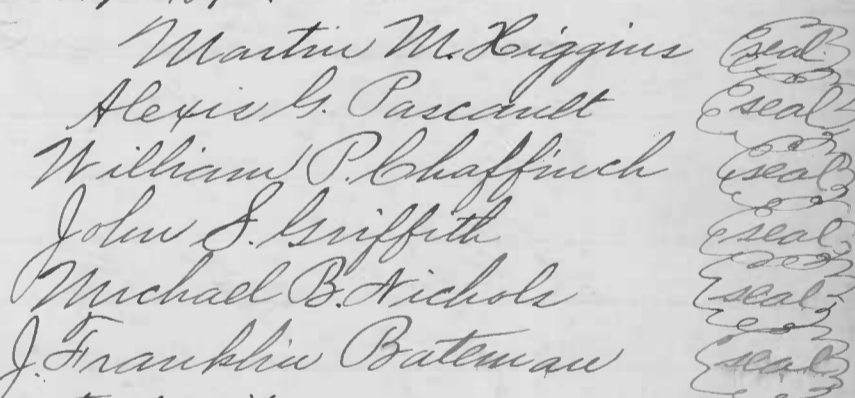 Martin M. Higgins (seal)
Alexis G. Pascault (seal)
William P. Chaffinch (seal)
John S. Griffith (seal)
Michael B. Nichols (seal)
J. Franklin Bateman (seal)